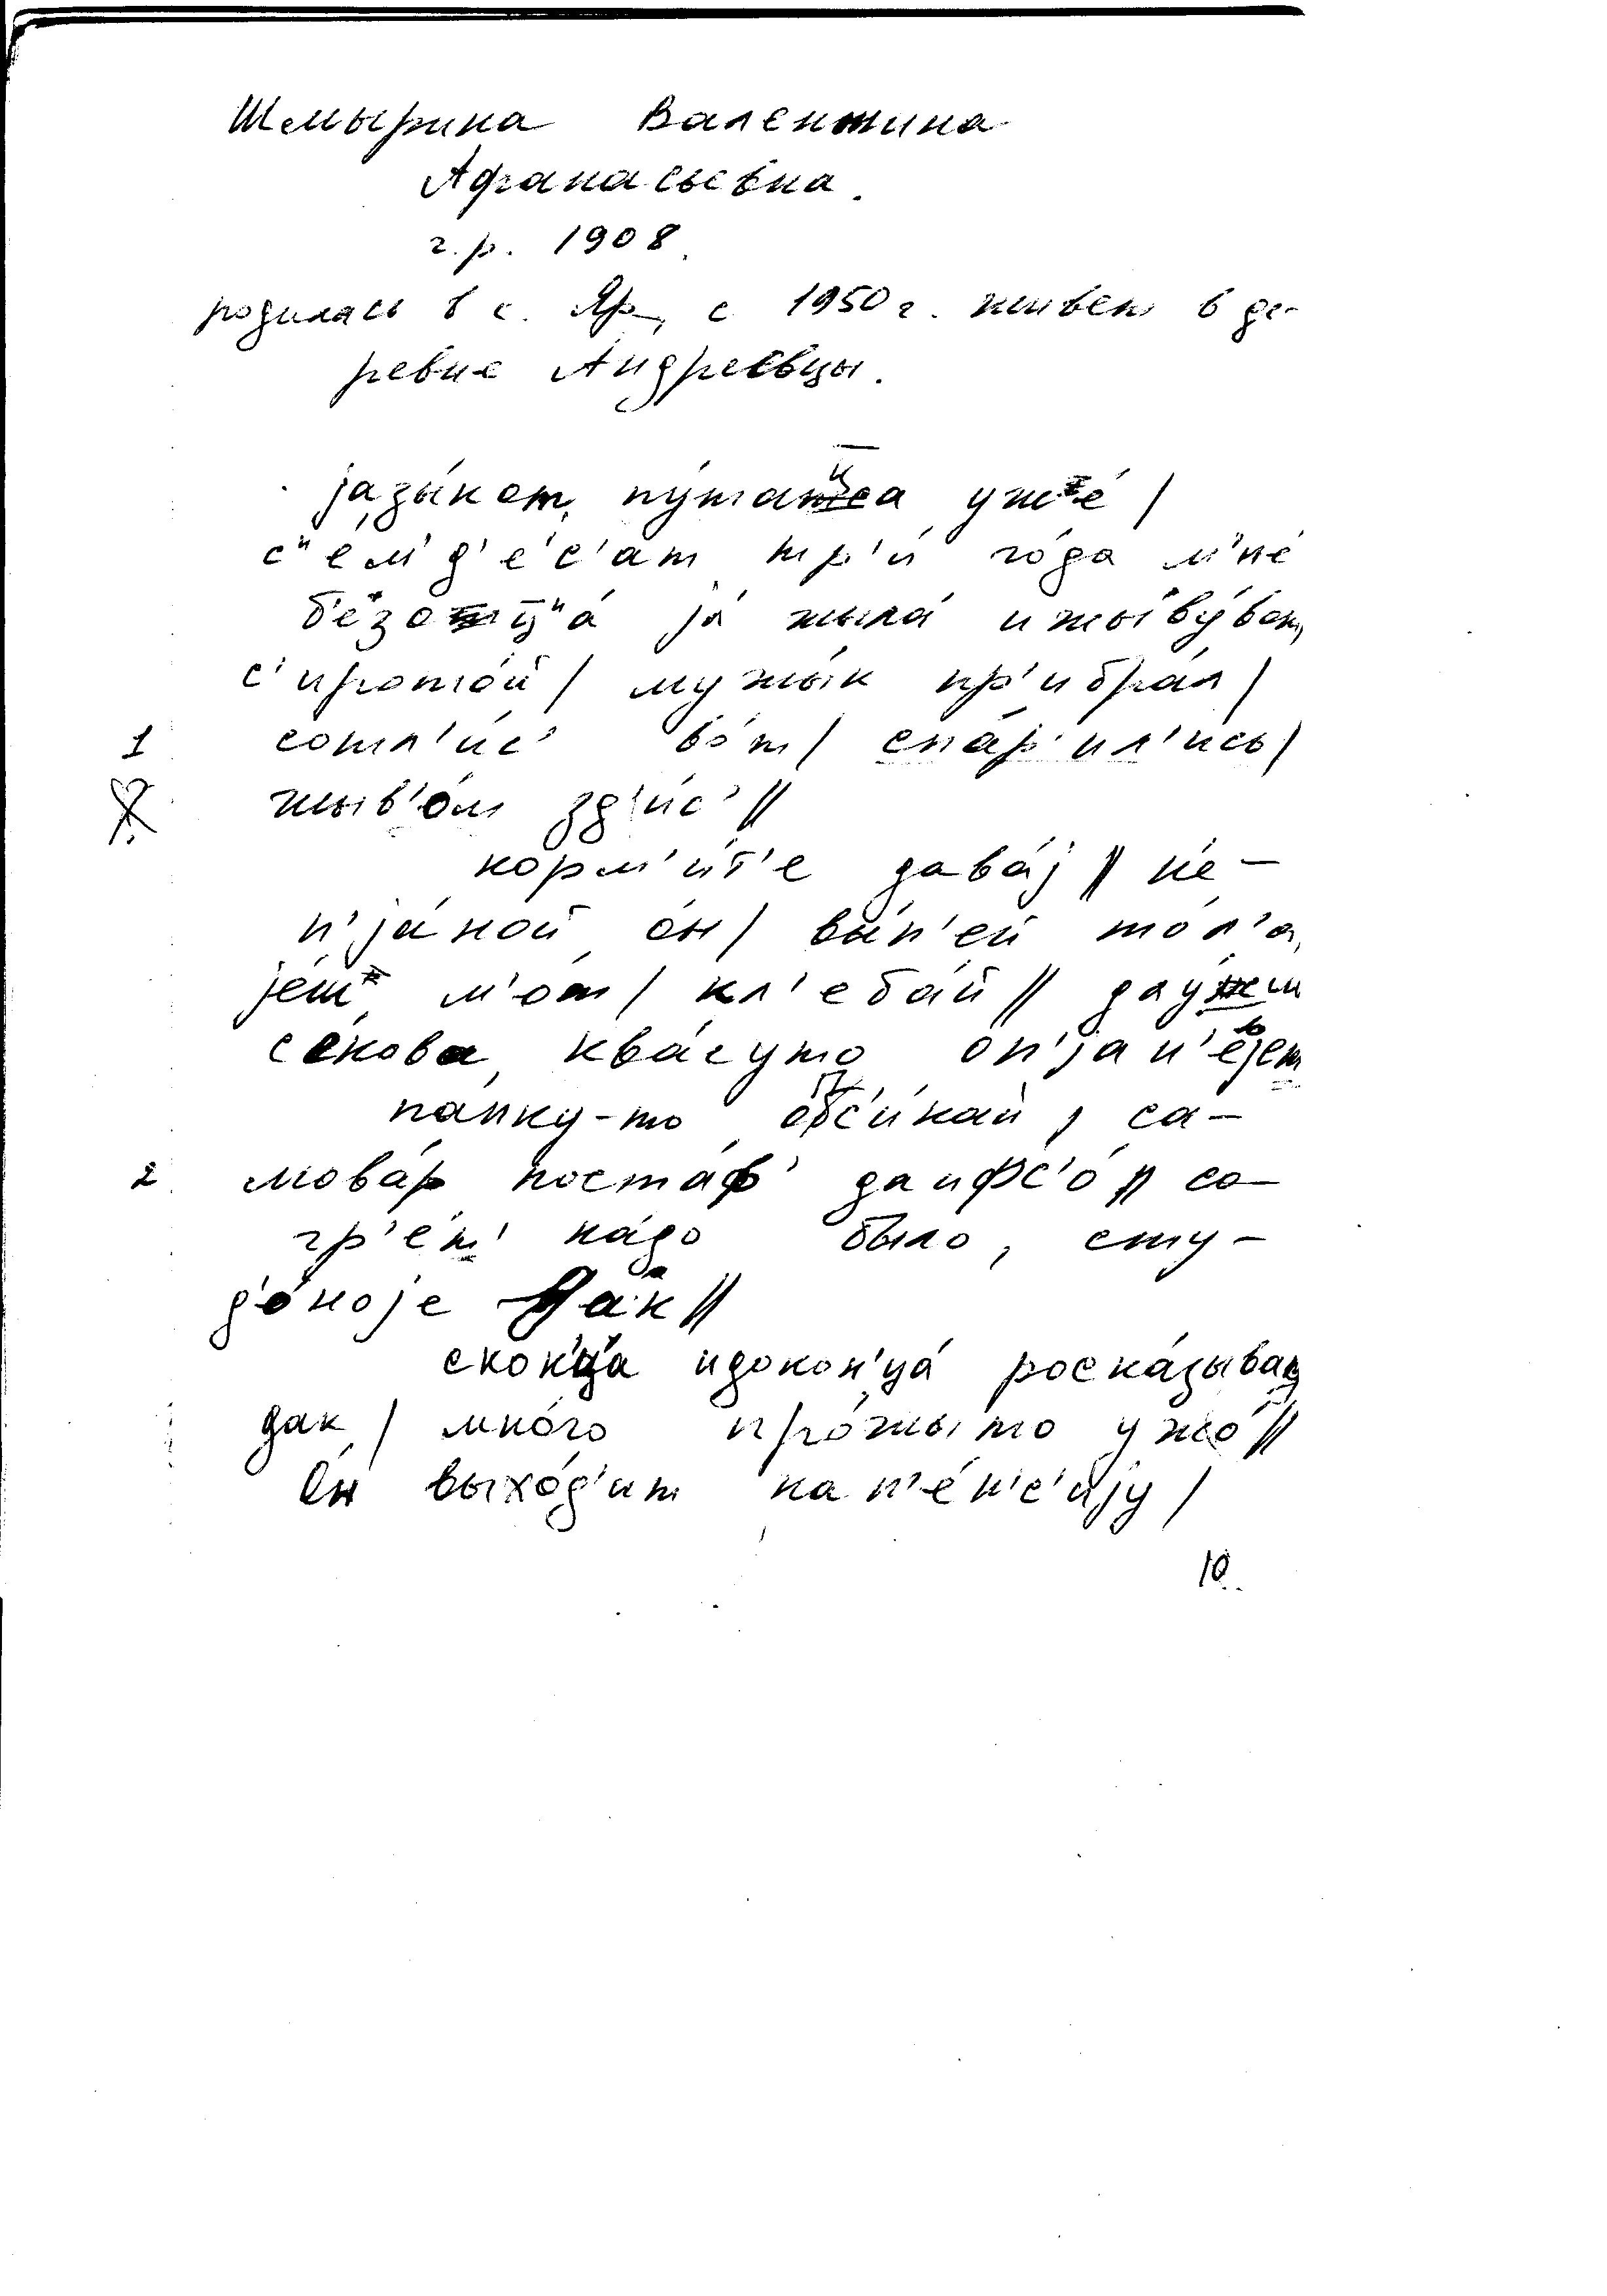 Шемырина Валентина
Афанасьевна.
г.р. 1908.
родилась в с. Яр, с 1950 г. живет в де-
ревне Андреевцы.
jазы́кот пу́таца уже́ /
с'е́м'д'ес'ат тр'и́ го́да м'не́
без оц'а́ jа́ жыла́
с'ирото́й / мужы́к пр'ибра́л /
1 сошл'и́с' во́т / спа́р'ил'ись /
жыв'о́м зд'и́с' //
корм'и́т'е дава́j // не́-
п'jа́ной о́н / вы́п'ей то́л'а
jе́ш м'о́т / хл'еба́й //
квасуто оп'jап'е́jет
папку-то обс'и́кай, са-
2 мова́р поста́ф' даифс'о́ // со-
гр'е́т' на́до было, сту-
д'о́ноjе да́к //
скон'ца́ идокон'ца́ роска́зыват
дак / мно́го про́жыто ужо́ //
Он выхо́д'ит на п'е́н'с'иjу /
10.